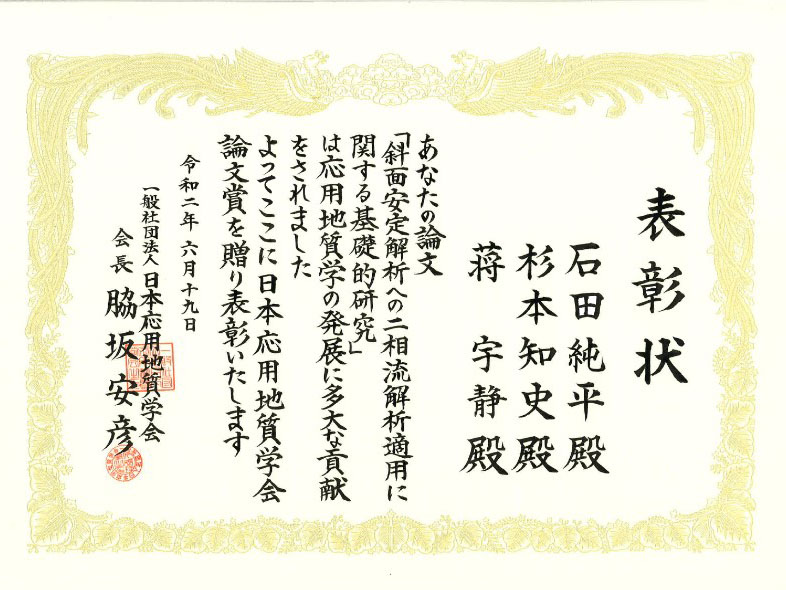 表彰状
石田純平殿
杉本知史殿
蒋宇静殿
あなたの論文
「斜面安定解析への二相流解析適用に
関する基礎的研究」
は応用地質学の発展に多大な貢献
をされました
よってここに日本応用地質学会
論文賞を贈り表彰いたします
令和二年六月十九日
一般社団法人日本応用地質学会
会長 脇坂安彦